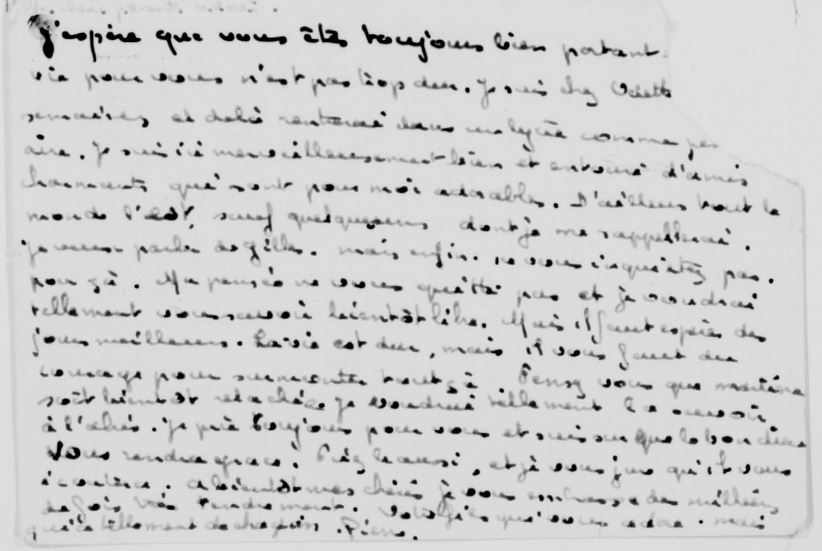 J'espère que vous êtes toujours bien portant.
vie pour vous n'est pas trop dur. Je suis chez Odette
semaines et delà rentrerai dans un lycée comme
Je suis ici merveilleusement bien et entouré d'amis
charmants qui sont pour moi adorables. D'ailleurs tout le
monde l'est, sauf quelques uns dont je me rappellerai.
je veux parler de Gilles. mais enfin. ne vous inquiétez pas.
pour çà. Ma pensée ne vous quitte pas et je voudrai
tellement vous savoir bientôt libre. Mais il faut espérer des
jours meilleurs. La vie est dur, mais il vous faut du
courage pour surmonter tout çà. Pensez vous que
soit bientôt relachée je voudrai tellement la savoir
à l'abri. Je prie toujours pour vous et suis sur que le bon dieu
vous rendra grace. Priez le aussi, et je vous jure qu'il vous
écoutera. A bientôt mes chéris je vous embrasse des milliers
de fois très tendrement. votre fils qui vous adore. mais
qui a tellement de chagrin. Pierre.